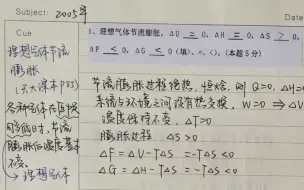 Subject: 2005年
Cue
理想气体节流
膨胀
(天大课本P85)
各种气体在压接
时,节流
膨胀后温度基本
不变。
→理想气体
1. 理想气体节流膨胀,ΔU = 0,ΔH = 0,ΔS > 0,
ΔF < 0,ΔG < 0(填>、=、<)。(本题 5 分)
节流膨胀过程绝热、恒焓,则 Q=0,ΔH=0
系统与环境之间没有热交换,W=0 ⇒ΔU
温度保持不变,ΔT=0
膨胀过程 ΔS>0
ΔF=ΔU-TΔS =-TΔS<0
ΔG=ΔH-TΔS =-TΔS<0